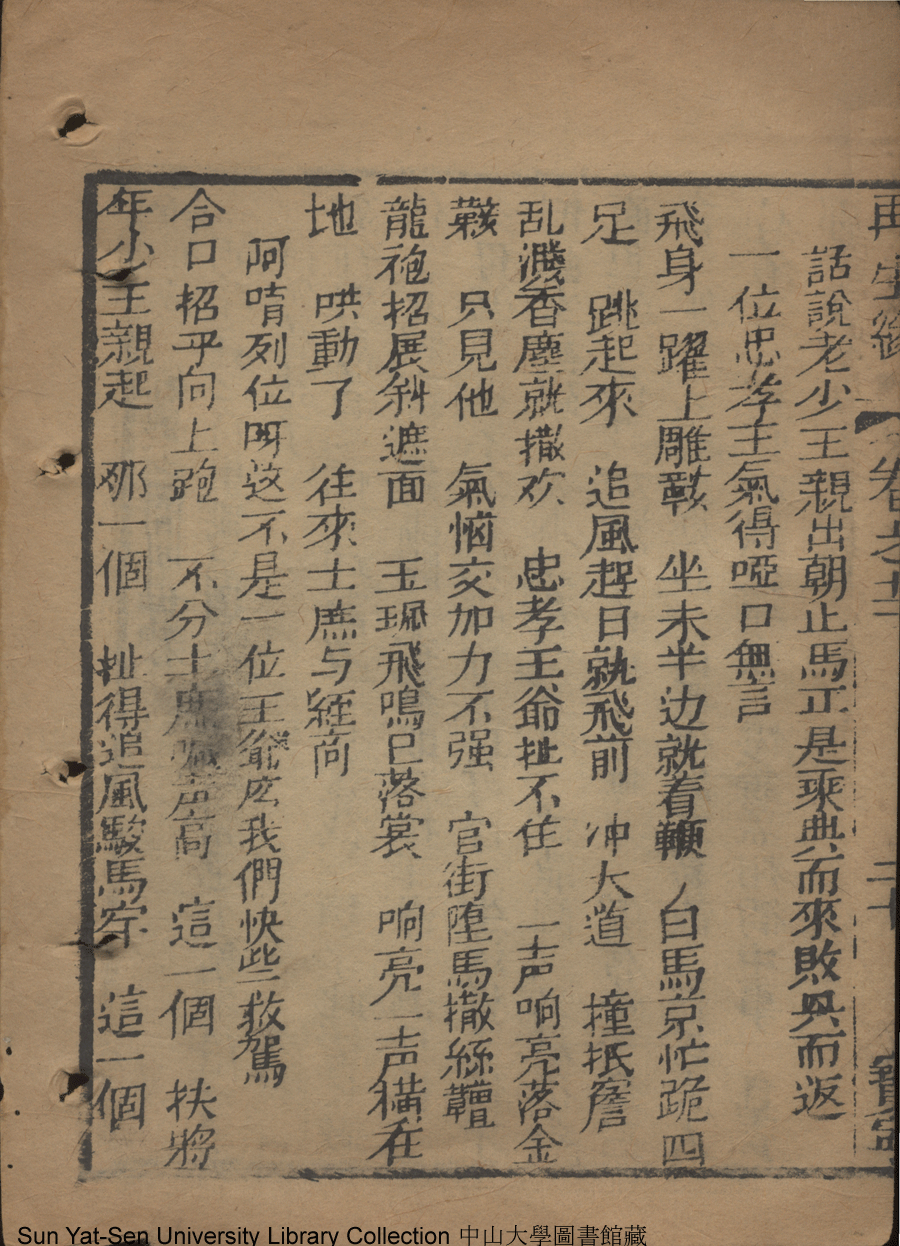 再生緣 卷之十二 二十 寶
話說老少王親出朝止馬正是乘興而來敗興而返
一位忠孝王氣得啞口無言
飛身一躍上雕鞍 坐未半边就着鞭 白馬京忙跪四
足 跳起來 追風趕日就飛前 冲大道 撞抵簷
乱濺香塵就撒欢 忠孝王爺扯不住 一声响亮落金
鞍 只見他 氣恼交加力不强 官街墮馬撒絲韁
龍袍招展斜遮面 玉珮飛鳴已落裳 响亮一声橫在
地 哄動了 往來士庶与經商
阿唷列位呀这不是一位王爺庅我們快些救駕
合口招乎向上跑 不分士庶喊声高 這一個 扶將
年少王親起 那一個 扯得追風駿馬牢 這一個
Sun Yat-Sen University Library Collection 中山大學圖書館藏